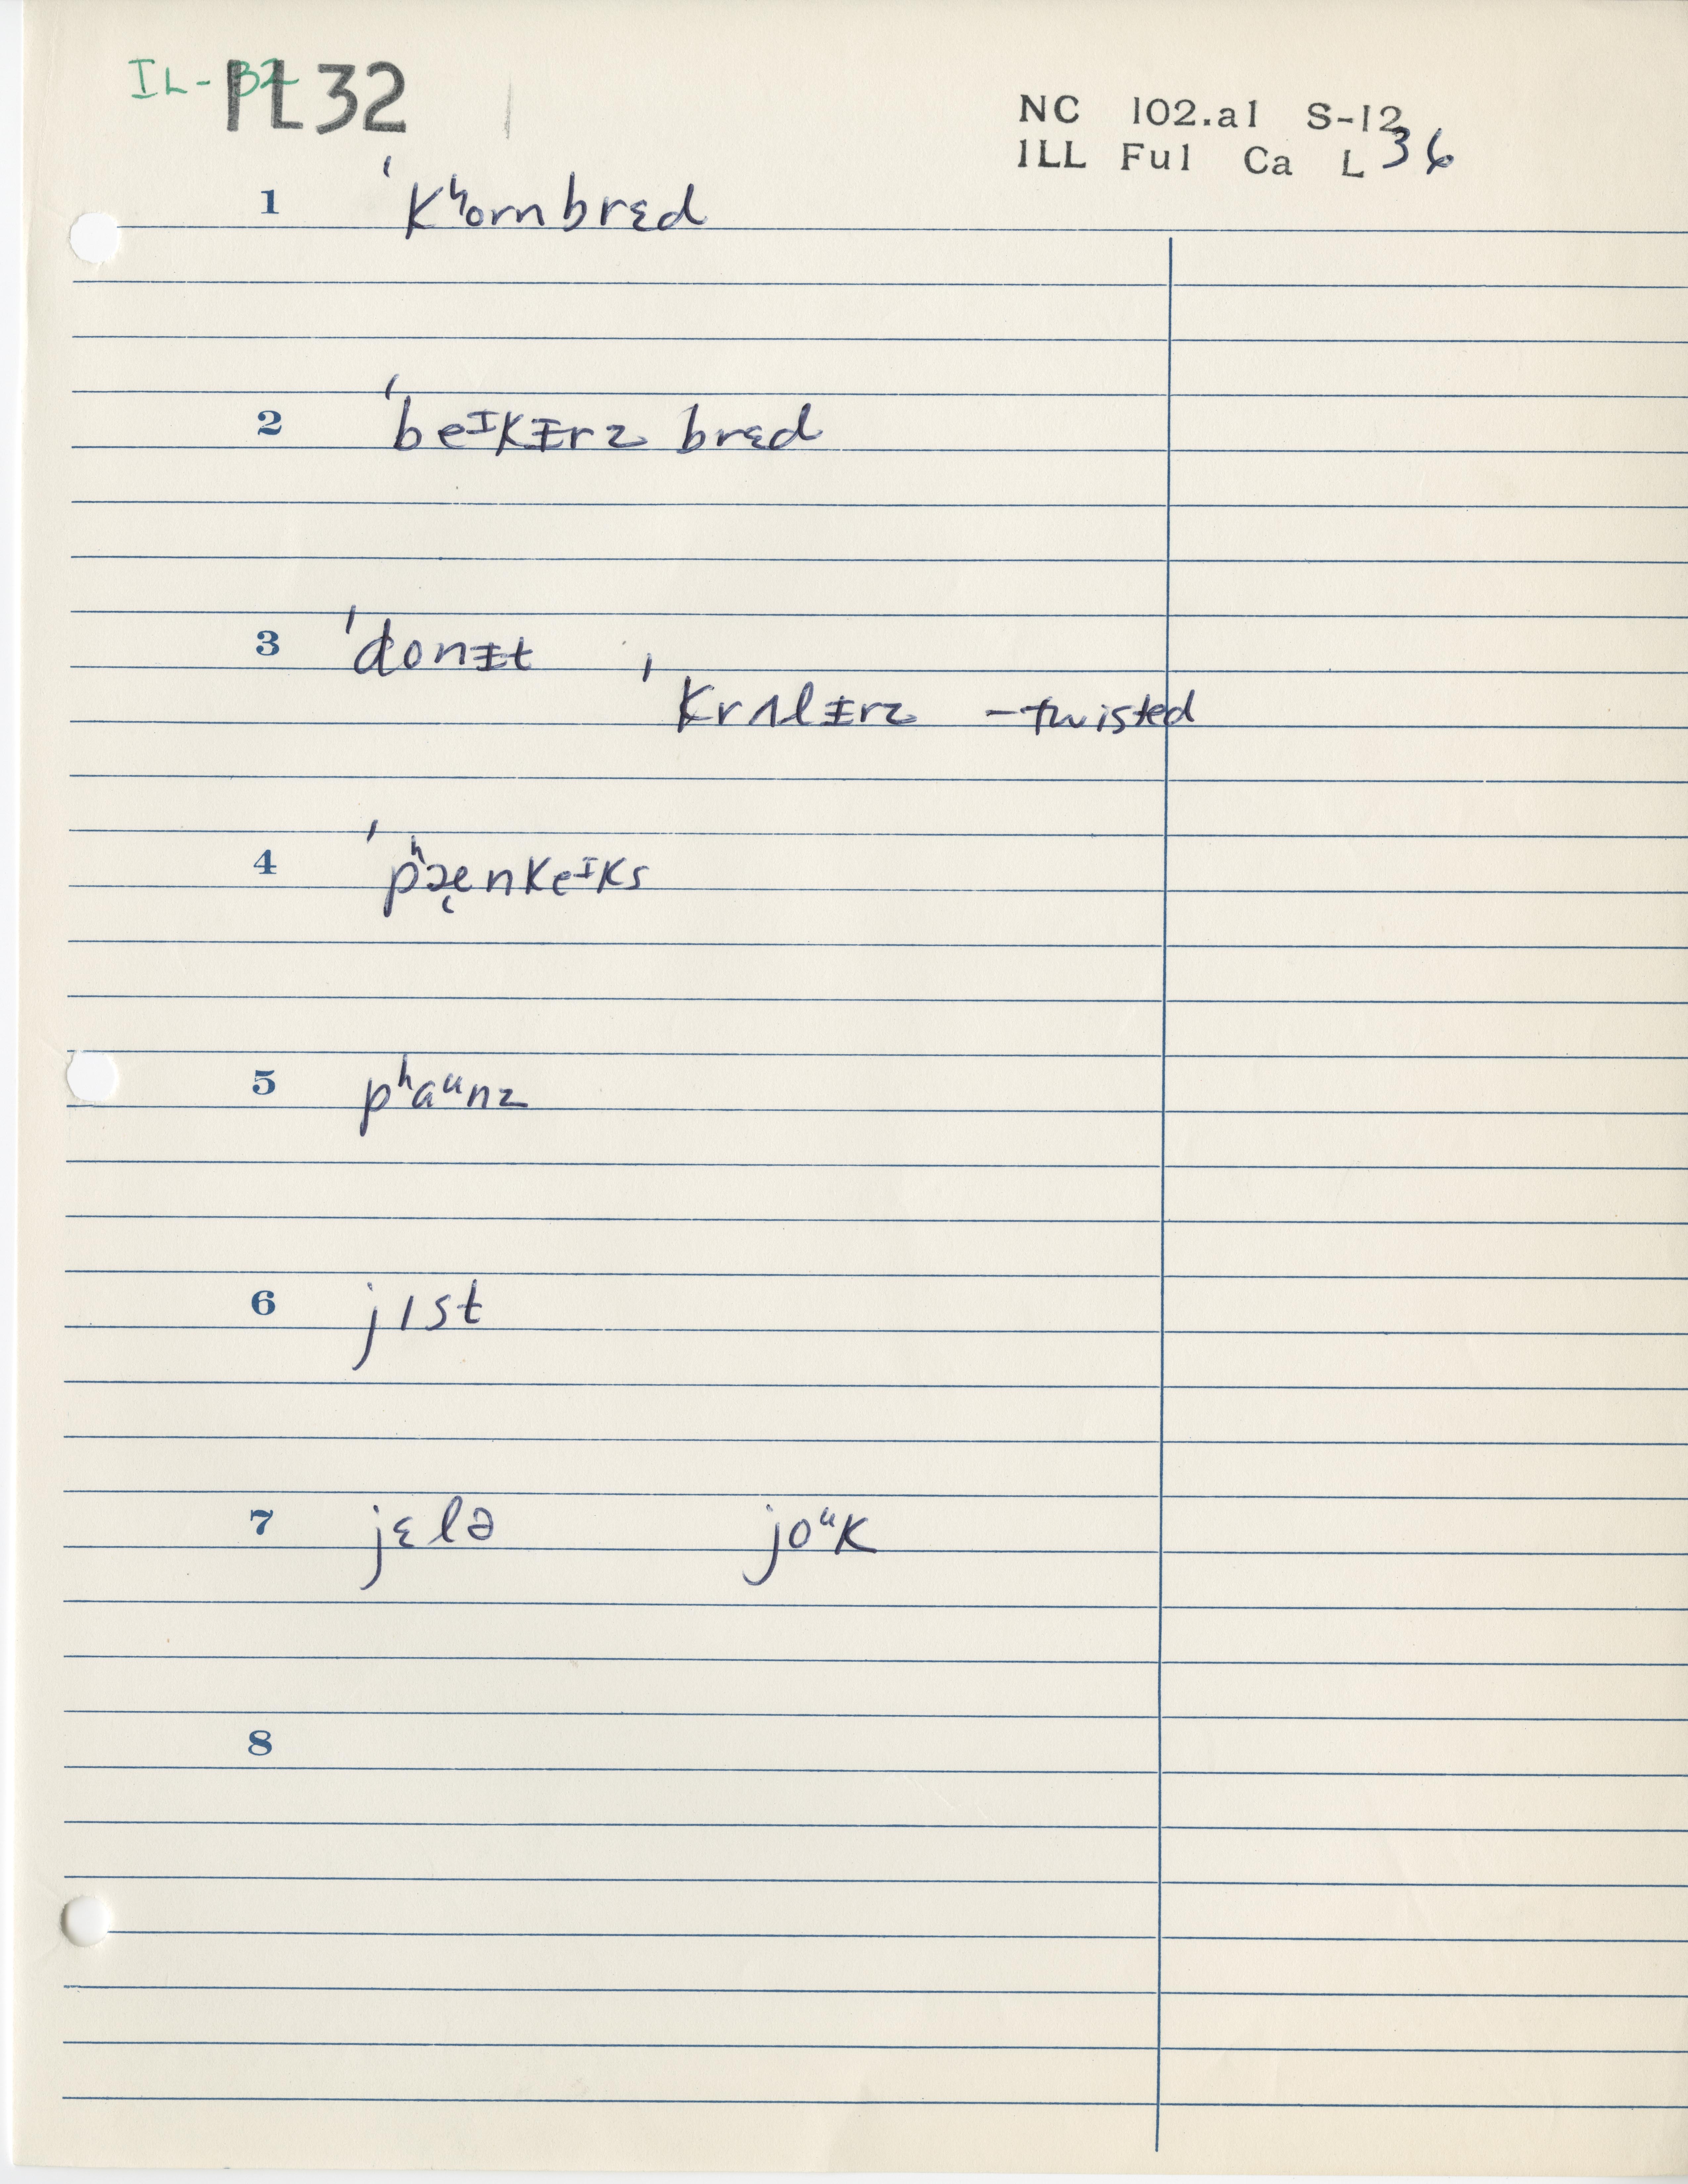 IL-32
PL32
NC 102.a1 S-12
ILL Ful Ca L 36
1 ˈkʰornbrɛd
2 ˈbeᶦkᵻrz brɛd
3 ˈdonᵻt
ˈkrʌlᵻrz - twisted
4 ˈpʰæ̜nkeᶦks
5 pʰaᵘnz
6 jɪst
7 jɛlə joᵘk
8